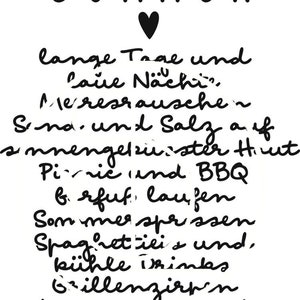 lange Tage und
laue Nächte
Meeresrauschen
Sand und Salz auf
sonnengeküsster Haut
Picknic und BBQ
barfuß laufen
Sommersprossen
Spaghettieis und
kühle Drinks
Grillenzirpen